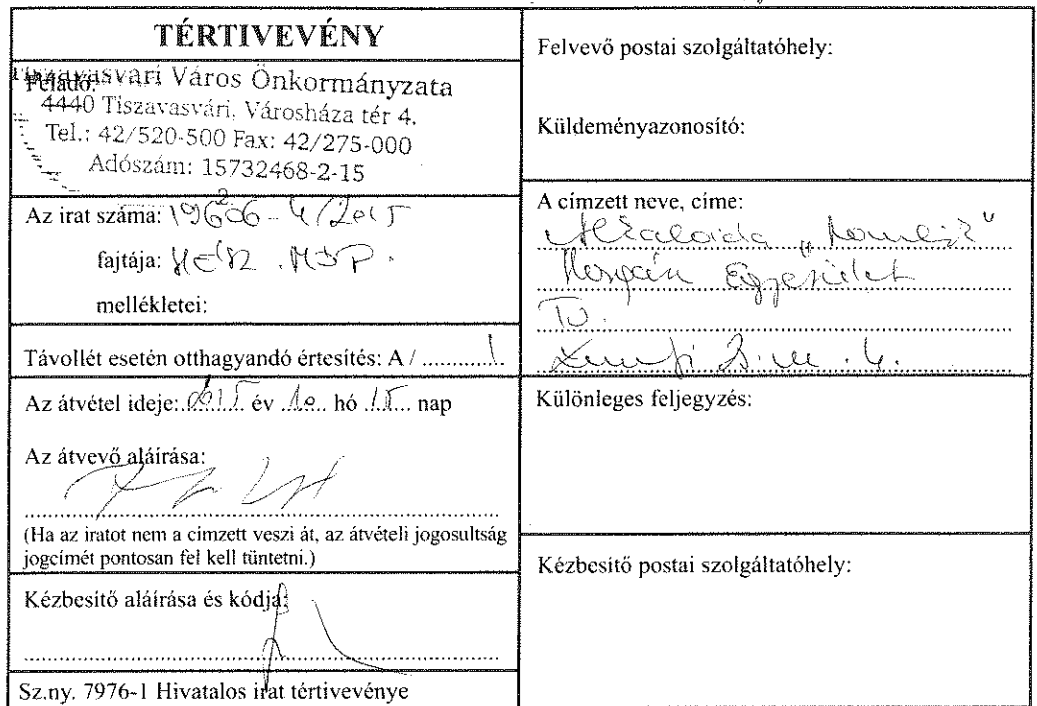 TÉRTIVEVÉNY
Feladó:
Tiszavasvári Város Önkormányzata
4440 Tiszavasvári, Városháza tér 4.
Tel.: 42/520-500 Fax: 42/275-000
Adószám: 15732468-2-15
Az irat száma: 19606-4/2015
fajtája:
mellékletei:
Távollét esetén otthagyandó értesítés: A / .............
Az átvétel ideje: 2015 év 10 hó 15 nap
Az átvevő aláírása:
(Ha az iratot nem a címzett veszi át, az átvételi jogosultság
jogcímét pontosan fel kell tüntetni.)
Kézbesítő aláírása és kódja:
Sz.ny. 7976-1 Hivatalos irat tértivevénye
Felvevő postai szolgáltatóhely:
Küldeményazonosító:
A címzett neve, címe:
Alkaloida
Egyesület
Különleges feljegyzés:
Kézbesítő postai szolgáltatóhely: